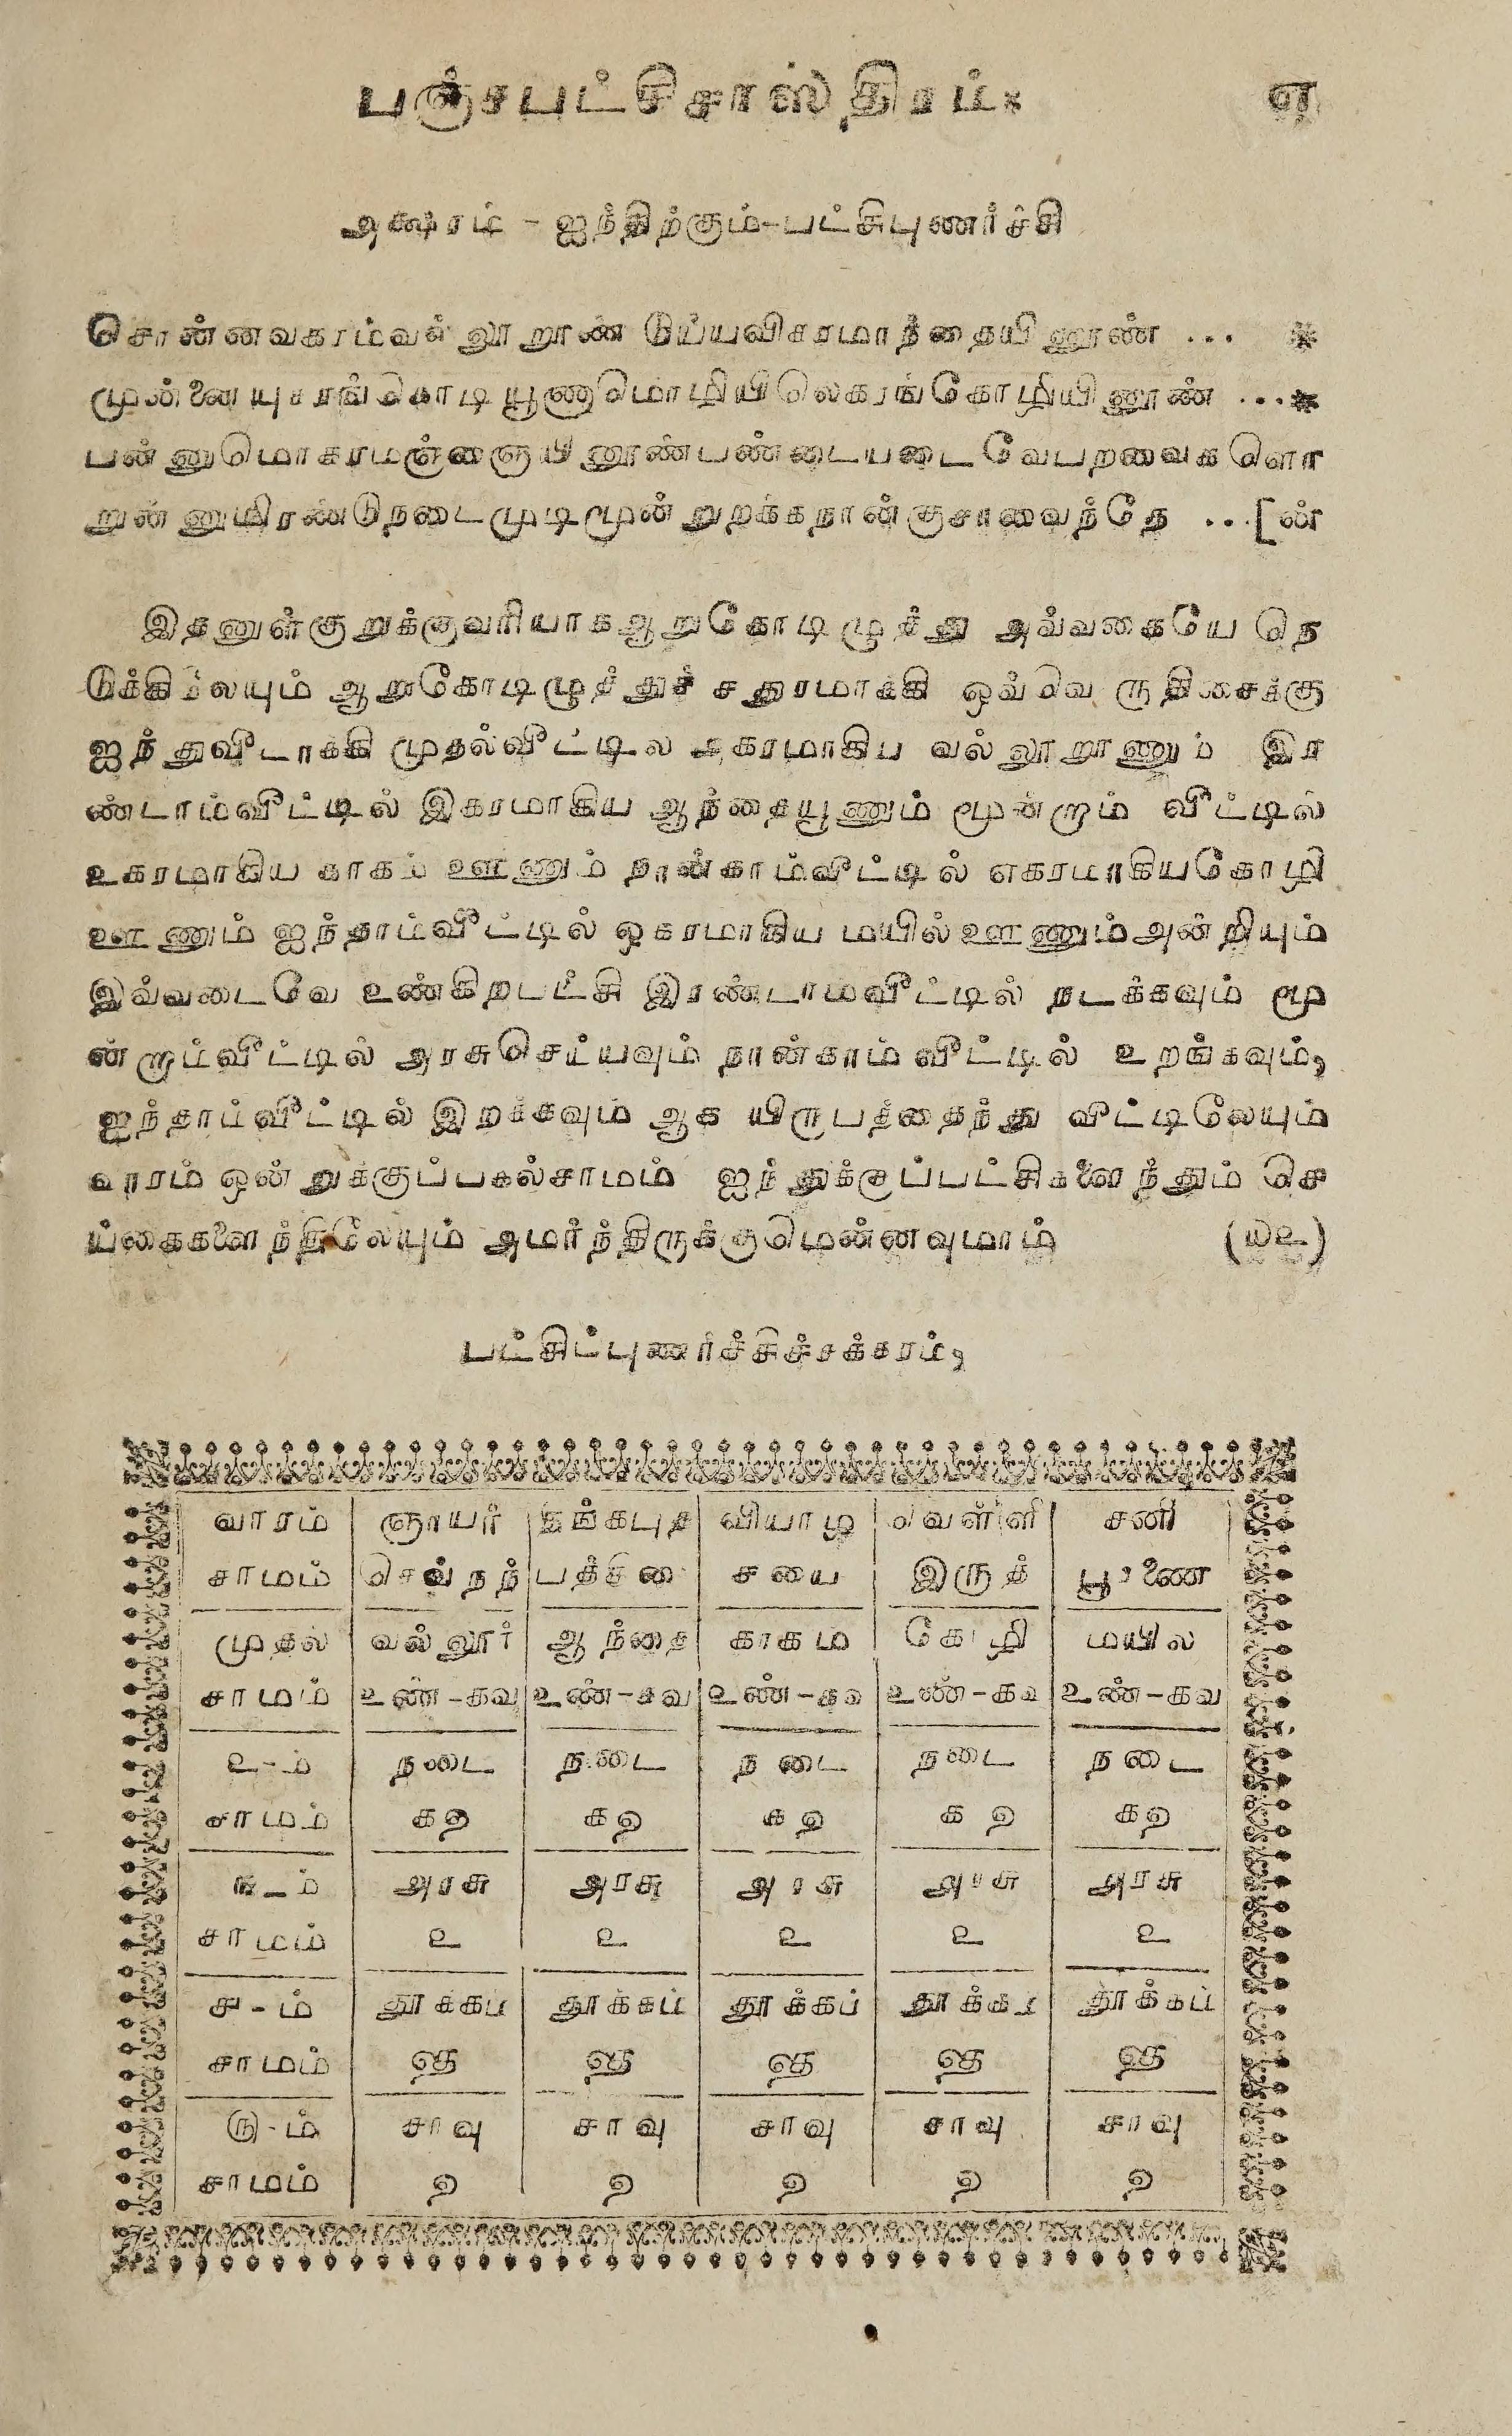 பஞ்சபட்சிசாஸ்திரம். எ
அக்ஷரம் - ஐந்திற்கும்-பட்சிபுணர்ச்சி
சொன்னவகரம்வல்லூறூண் டுய்யவிகரமாந்தையினூண் ... *
முன்னையுகரங்கொடியூணுமொழியிலெகரங்கோழியினூண் ...*
பன்னுமொகரமஞ்ஞையினூண்பண்டையடைவேபறவைகளொ
றுன்னுமிரண்டுநடைமுடிமூன்றுறக்கநான்குசாவைந்தே ...[ண்
இதனுள்குறுக்குவரியாகஆறுகோடிழுத்து அவ்வகையே நெ
டுக்கிலேயும் ஆறுகோடிழுத்துச் சதுரமாக்கி ஒவ்வெருதிசைக்கு
ஐந்துவீடாக்கி முதல்வீட்டில் அகரமாகிய வல்லூறூணும் இர
ண்டாம்வீட்டில் இகரமாகிய ஆந்தையூணும் மூன்றாம் வீட்டில்
உகரமாகிய காகம் ஊணும் நான்காம்வீட்டில் எகரமாகியகோழி
ஊணும் ஐந்தாம்வீட்டில் ஒகரமாகிய மயில்ஊணும்அன்றியும்
இவ்வடைவே உண்கிறபட்சி இரண்டாம்வீட்டில் நடக்கவும் மூ
ன்றாம்வீட்டில் அரசுசெய்யவும் நான்காம்வீட்டில் உறங்கவும்,
ஐந்தாம்வீட்டில் இறக்கவும் ஆக யிருபத்தைந்து வீட்டிலேயும்
வாரம் ஒன்றுக்குப்பகல்சாமம் ஐந்துக்குப்பட்சிகளைந்தும் செ
ய்கைகளைந்திலேயும் அமர்ந்திருக்குமென்னவுமாம் (௰௨)
பட்சிப்புணர்ச்சிச்சக்கரம்,
வாரம் ஞாயர் திங்கபுத வியாழ வெள்ளி சனி
சாமம் செவ்நந் பத்திரை சயை இருத் பூரணை
முதல் வல்லூர் ஆந்தை காகம் கோழி மயில்
சாமம் உண்-கவ உண்-கவ உண்-கவ உண்-கவ உண்-கவ
௨-ம் நடை நடை நடை நடை நடை
சாமம் க௭ க௭ க௭ க௭ க௭
௩-ம் அரசு அரசு அரசு அரசு அரசு
சாமம் ௨ ௨ ௨ ௨ ௨
௪-ம் தூக்கம் தூக்கம் தூக்கம் தூக்கம் தூக்கம்
சாமம்
௫-ம் சாவு சாவு சாவு சாவு சாவு
சாமம்